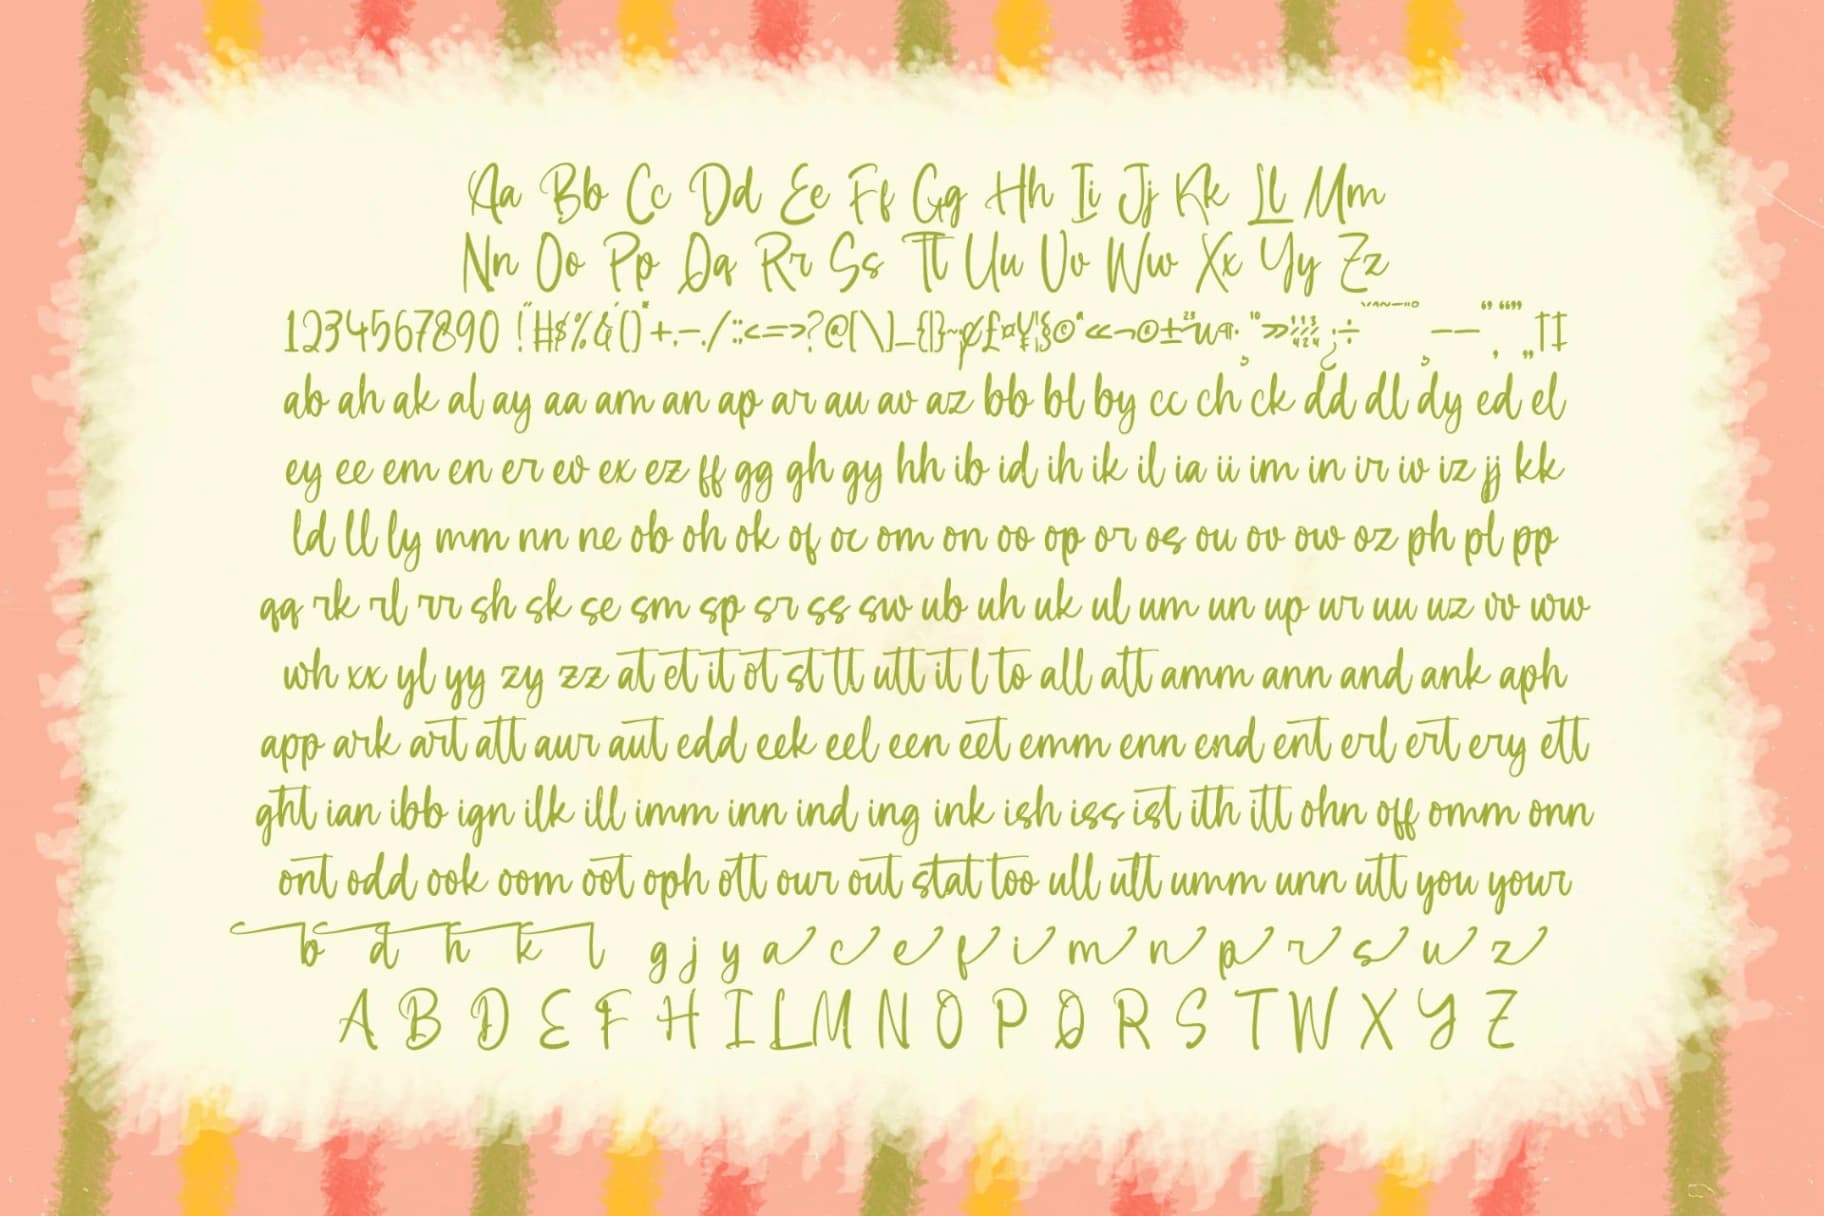 Aa Bb Cc Dd Ee Ff Gg Hh Ii Jj Kk Ll Mm
Nn Oo Pp Qq Rr Ss Tt Uu Vv Ww Xx Yy Zz
1234567890 !"#$%&'()*+,-./:;<=>?@[\]_{|}~¡¢£¤¥¦§©ª«¬®±²³µ¶·¸¹º»¼½¾¿÷ – — ‘ ’ ‚ “ ” „ † ‡
ab ah ak al ay aa am an ap ar au av az bb bl by cc ch ck dd dl dy ed el
ey ee em en er ev ex ez ff gg gh gy hh ib id ih ik il ia ii im in ir iv iz jj kk
ld ll ly mm nn ne ob oh ok of oc om on oo op or os ou ov ow oz ph pl pp
qq rk rl rr sh sk se sm sp sr ss sw ub uh uk ul um un up ur uu uz vv ww
wh xx yl yy zy zz at et it ot st tt utt it l to all att amm ann and ank aph
app ark art att aur aut edd eek eel een eet emm enn end ent erl ert ery ett
ght ian ibb ign ilk ill imm inn ind ing ink ish iss ist ith itt ohn off omm onn
ont odd ook oom oot oph ott our out stat too ull ult umm unn utt you your
b d h k l g j y a c e f i m n p r s u z
A B D E F H I L M N O P Q R S T W X Y Z